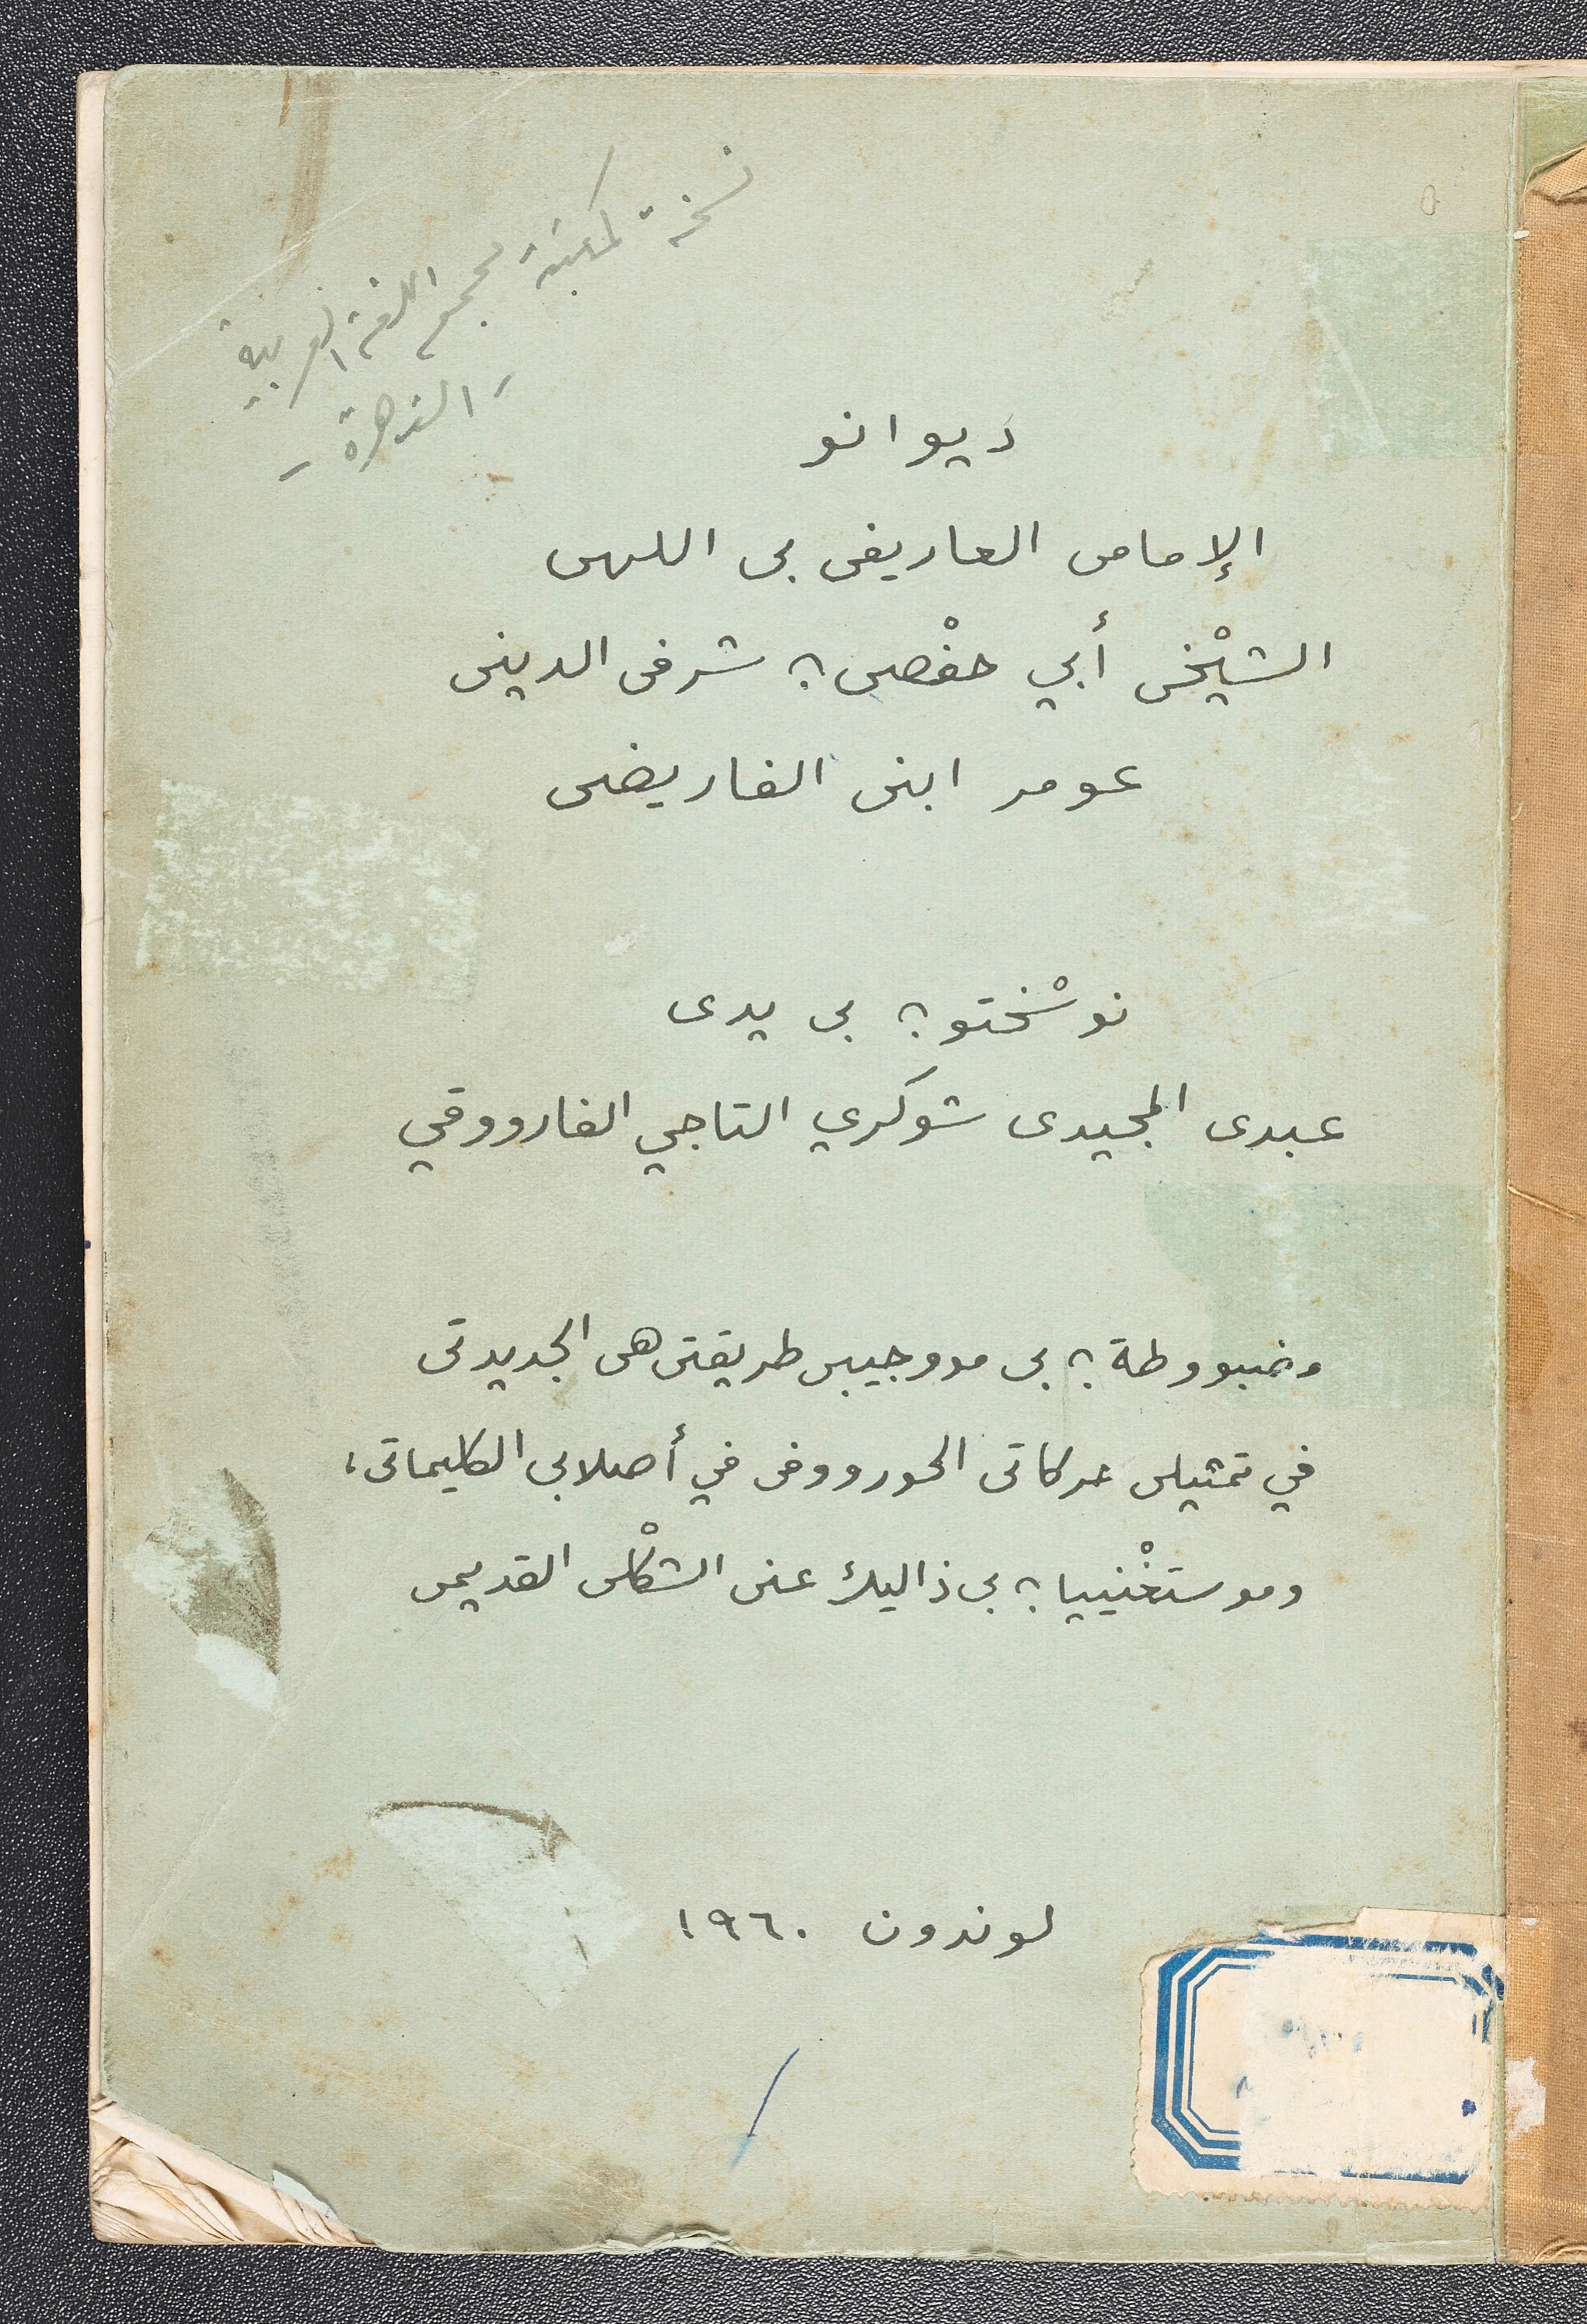 نسخة لمكتبة مجمع اللغة العربية
- القاهرة -
ديوانو
الإمامى العاريفى بى اللهى
الشيْخى أبي حفْصى ؛ شرفى الدينى
عومر ابنى الفاريضى
نوسْختو ؛ بى يدى
عبدى المجيدى شوكري التاجي الفارووقي
مضبووطة ؛ بى مووجيبى طريقتى هى الجديدتى
في تمثيلى حركاتى الحورووفى في أصلابى الكليماتى،
وموستغْنييا ؛ بى ذاليك عنى الشكْلى القديمى
لوندون ١٩٦٠